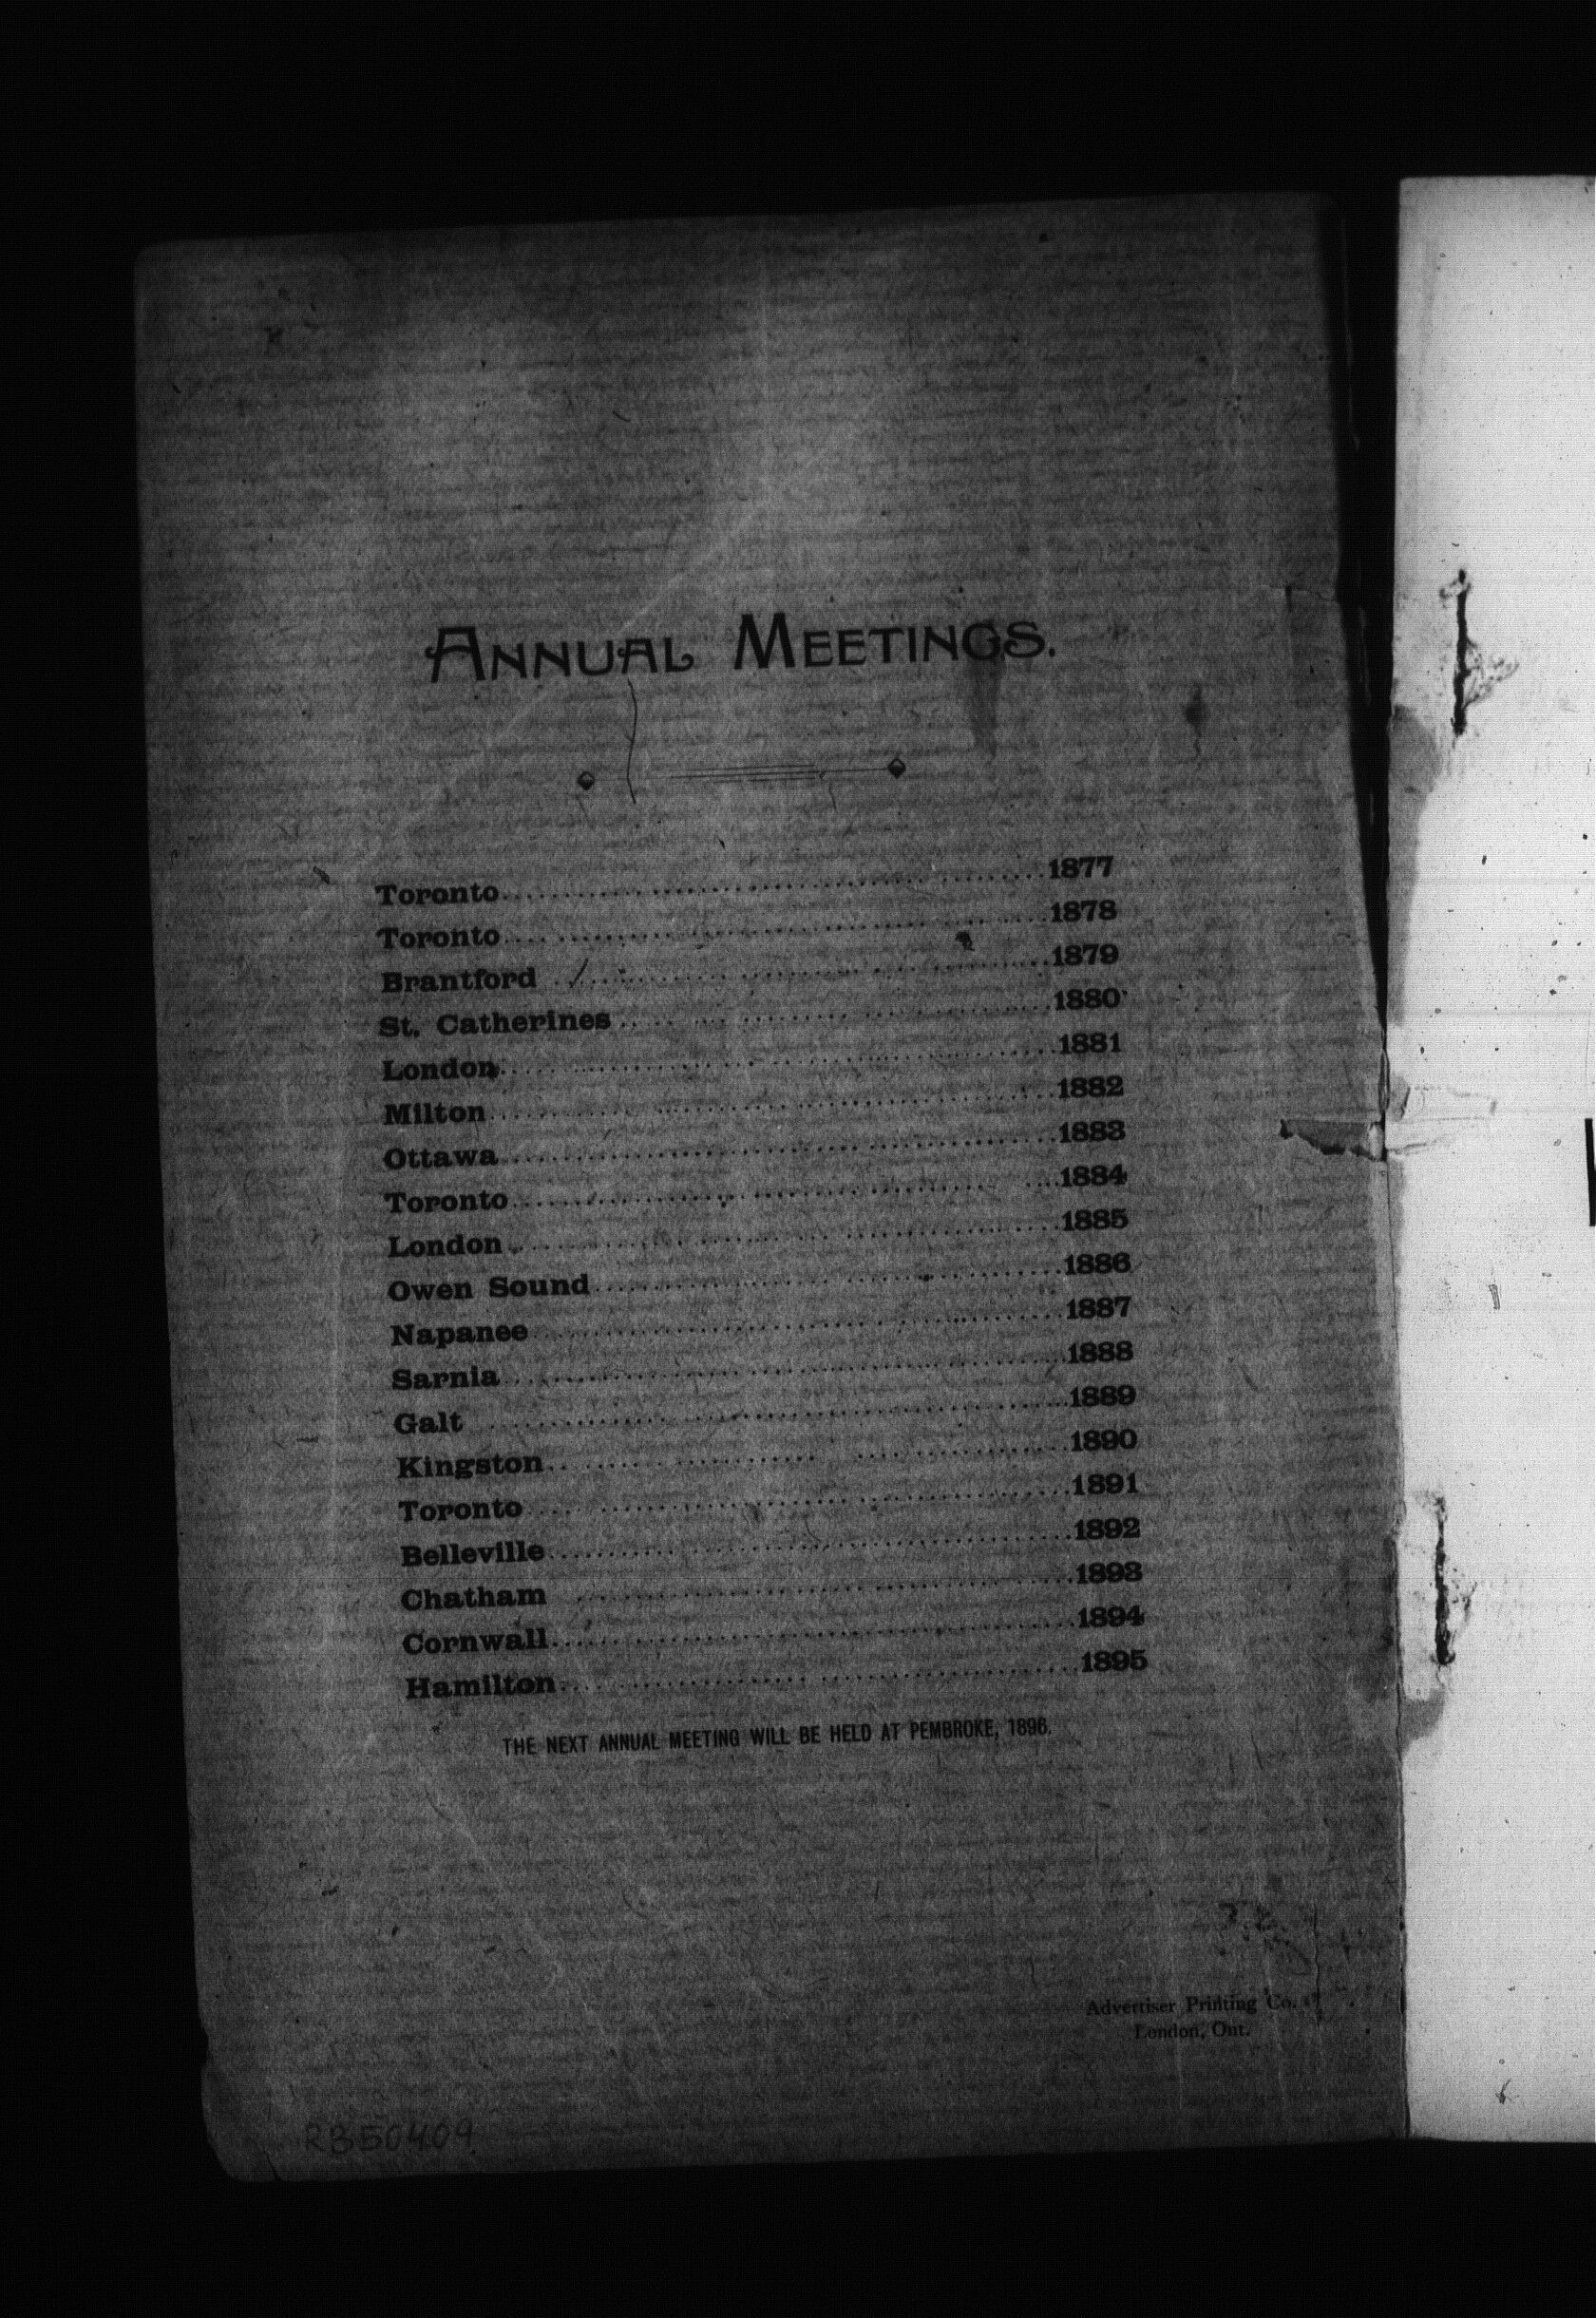 ANNUAL MEETINGS.
Toronto........................................1877
Toronto........................................1878
Brantford........................................1879
St. Catherines........................................1880
London........................................1881
Milton........................................1882
Ottawa........................................1883
Toronto........................................1884
London........................................1885
Owen Sound........................................1886
Napanee........................................1887
Sarnia........................................1888
Galt........................................1889
Kingston........................................1890
Toronto........................................1891
Belleville........................................1892
Chatham........................................1893
Cornwall........................................1894
Hamilton........................................1895
THE NEXT ANNUAL MEETING WILL BE HELD AT PEMBROKE, 1896.
Advertiser Printing Co.
London, Ont.
RB50409